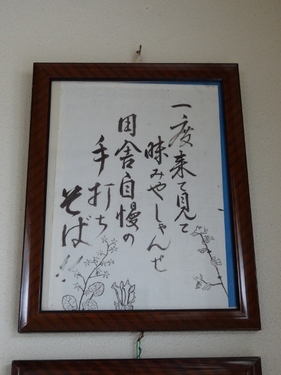 一度来て見て
味みやしゃんせ
田舎自慢の
手打ち
そば!!